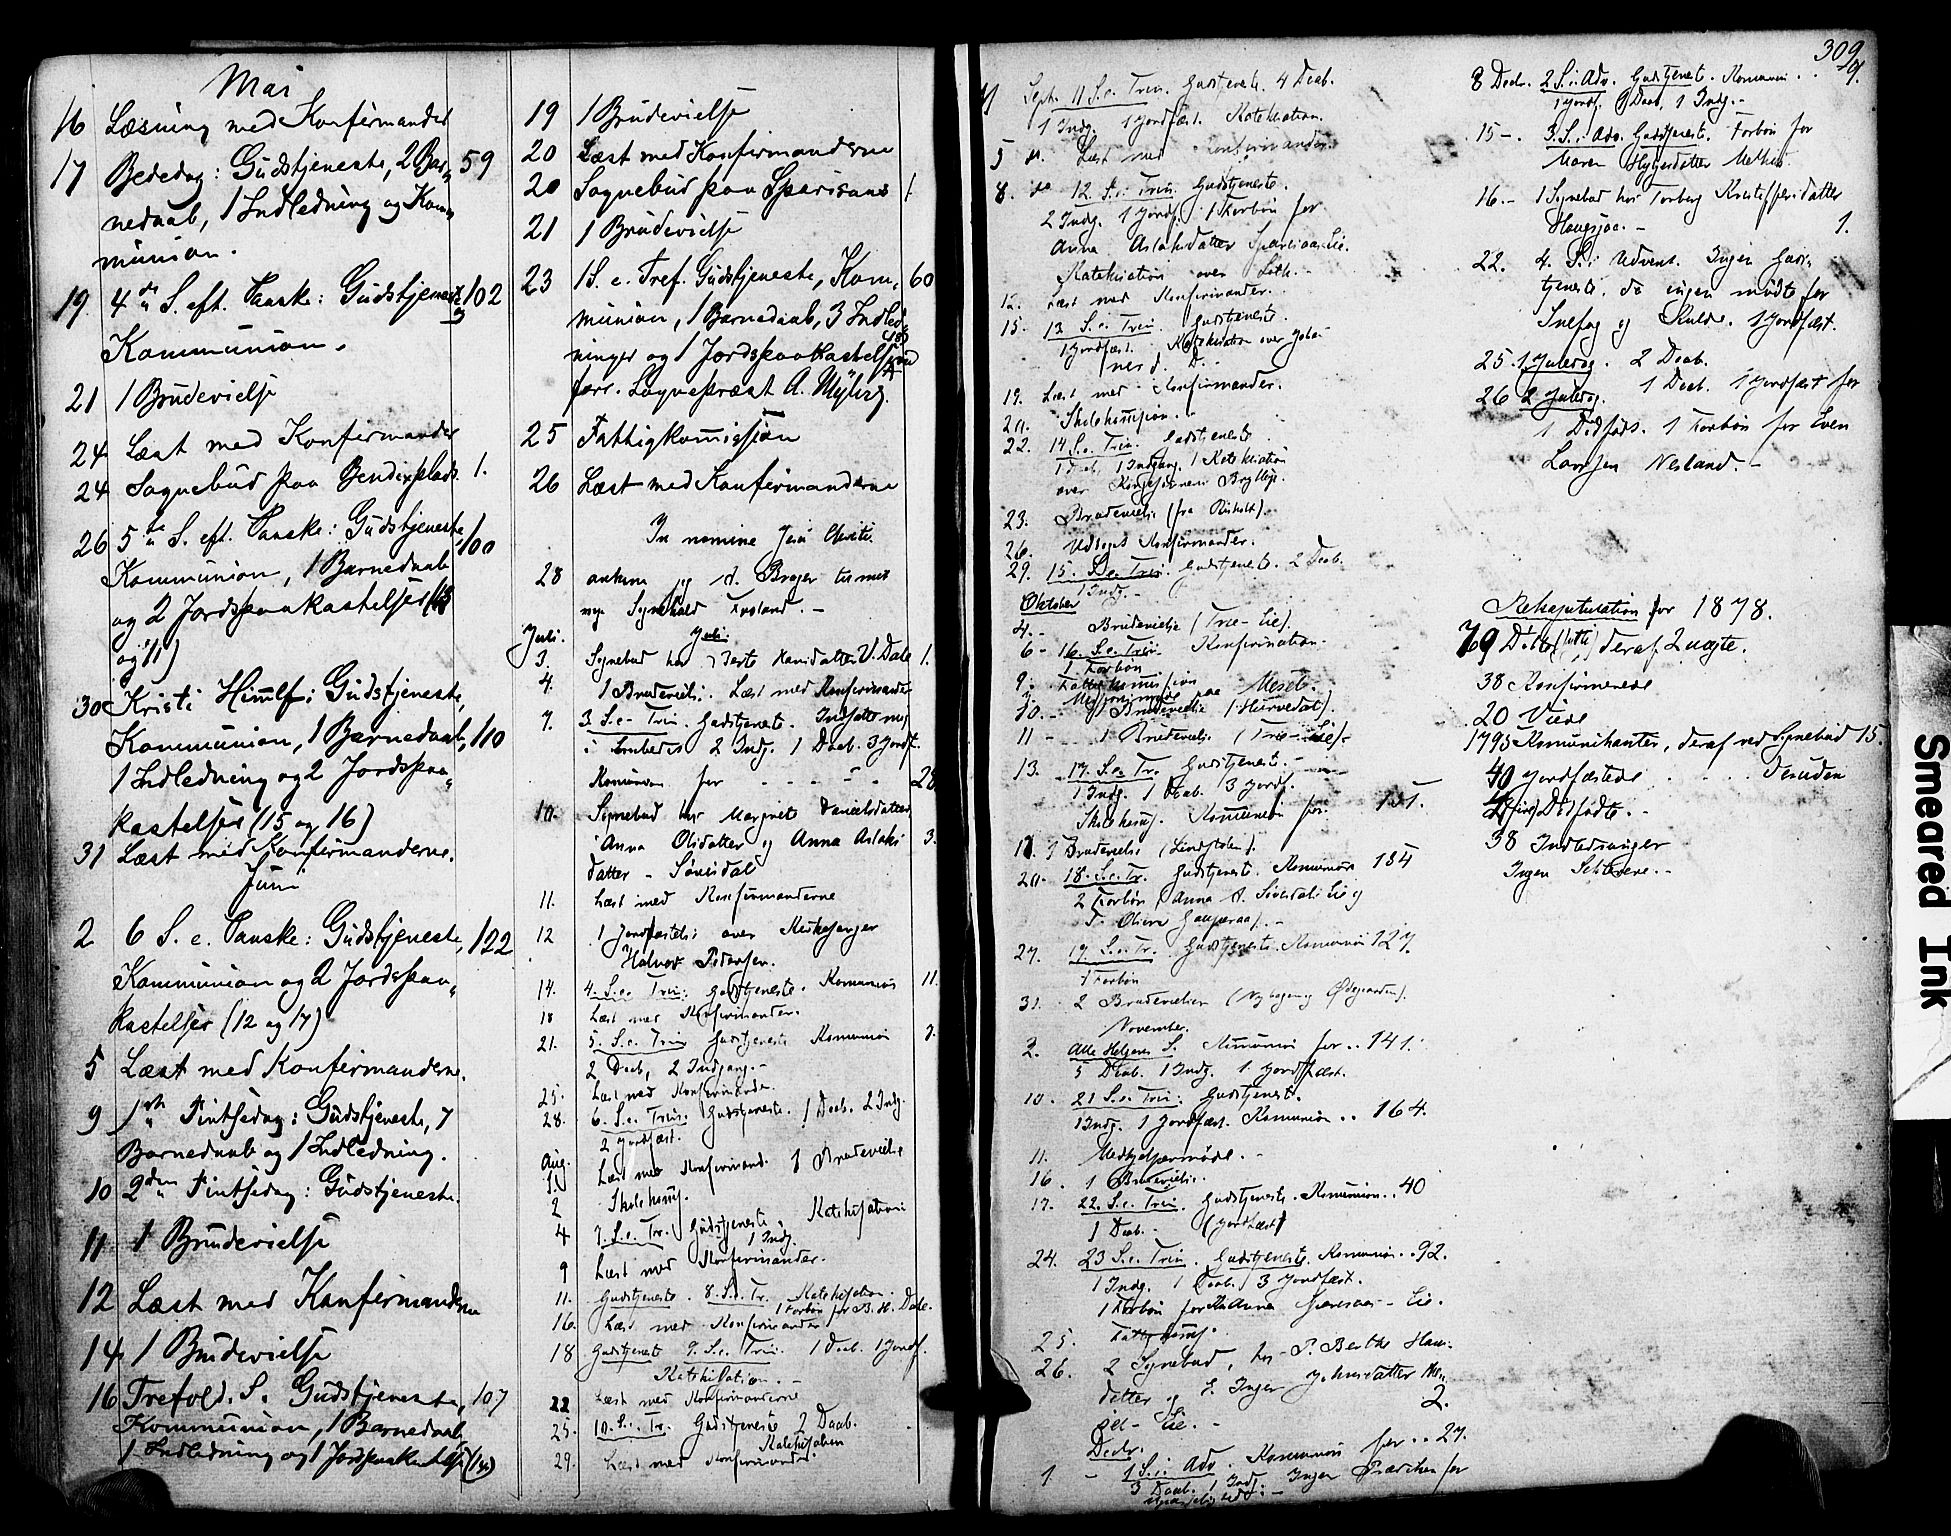 Mai
16 Læsning med Konfirmander
17 Bededag: Gudstjeneste, 2 Bar„ 59
nedaab, 1 Indledning og Kom„
munion.
19. 4de S. eft. Paaske: Gudstjeneste og 102
Kommunion.
21 1 Brudevielse
24 Læst med Konfirmander
24 Sognebud paa Bendixplads 1.
26 5te S. eft. Paaske: Gudstjeneste, 100
Kommunion, 1 Barnedaab
og 2 Jordspaakastelser (13
og 11)
30 Kristi Himlf: Gudstjeneste,
Kommunion, 1 Barnedaab, 110
1 Indledning og 2 Jordspaa„
kastelser (15 og 16)
31 Læst med Konfirmanderne.
Juni
2 6 S. e. Paaske: Gudstjeneste, 122
Kommunion og 2 Jordspaa„
kastelser (12 og 17)
5 Læst med Konfirmanderne.
9 1ste Pintsedag: Gudstjeneste, 7
Barnedaab og 1 Indledning.
10 2den Pintsedag: Gudstjeneste.
11 1 Brudevielse
12 Læst med Konfirmanderne
14 1 Brudevielse
16 Trefold. S. Gudstjeneste, 107
Kommunion, 1 Barnedaab,
1 Indledning og 1 Jordspaakastelse (14)
19 1 Brudevielse
20 Læst med Konfirmanderne
20 Sognebud paa Sparsaas 1.
21 1 Brudevielse
23 1 S. e. Tref. Gudstjeneste, Kom„ 60
munion, 1 Barnedaab, 3 Indled„
ninger og 1 Jordspaakastelse (18)
forr. Sognepræst A. Myhrg.
25 Fattigkomission
26 Læst med Konfirmanderne
In nomine Jesu Christi
28 ankom jeg A. Brager til mit
nye Sognekald
Juli. Juli:
3. Sognebud hos Jerte Hansdatter V. Dale 1.
4. 1 Brudevielse. Læst med Konfirmander
7. 3 S. e. Trin. Gudstjeneste. Indsatte mig
i Embedet 2 Indg. 1 Daab. 3 Jordf.
Komunion for - - - - - 28
10. Sognebud hos Margrete Danielsdatter
Anna Olsdatter og Anna Aslaks 3.
datter - Sønisdal
11. Læst med Konfirmanderne
12 1 Jordfæstelse over Kirkesanger
Halvor Pedersen.
14. 4. S. e. Trin: Gudstjeneste. Komunion 11.
18 Læst med Konfirmander.
21. 5. S. e. Trin Gudstjeneste Komunion 7.
2 Daab, 2 Indgang. -
25. Læst med Konfirmander.
28. 6. S. e. Trin. Gudstjeneste. 1 Daab. 2 Indg.
2 Jordfæst.
Aug.
1. Læst med Konfirmand. 1 Brudevielse
2 Skolekomis.
4 7. S. e. Tr. Gudstjeneste, Katekisation
1 Indg.
9 Læst med Konfirmander.
11. Gudstjeneste. 8. S. e. Tr. Katekisation.
1 Forbøn for B. H. Dale.
16. Læst med Konfirmander
18 Gudstjeneste 9. S. e. Trin. 1 Daab. 1 Jordf.
Katekisation. -
22 Læst med Konfirmanderne
25. 10. S. e. Tr. Gudstjeneste 2 Daab.
Katekisation
29. Læst med Konfirmander.
309
9.
Sept. 11 S. e. Trin. Gudstjeneste. 4 Daab.
1 Indg. 1 Jordfæst. Katekisation.
5 Læst med Konfirmander.
8. 12. S. e. Trin. Gudstjeneste.
2 Indg. 1 Jordf. 1 Forbøn for
Anna Aslaksdatter Sparsaas Eie.
Katekisation over Loth. -
12. Læst med Konfirmander.
15. 13 S. e. Trin. Gudstjeneste.
1 Jordfæst. Katekisation over Joha-
nes d. D. -
19. Læst med Konfirmander.
20. Skolekomission.
22. 14 S. e. Trin. Gudstjeneste.
1 Daab. 1 Indgang. 1 Katekisation
over Kongesønnens Bryllup.
23. Brudevielse
26. Udtoges Konfirmander.
29. 15. S. e. Trin. Gudstjeneste. 2 Daab.
1 Indg. -
Oktober
4. - Brudevielse
6 - 16. S. e. Trin. Konfirmation.
1 Forbøn
9. Fattigkomission
10. - 1 Brudevielse (Hurvedal).
11 - 1 Brudevielse
13. 17. S. e. Tr. Gudstjeneste. -
1 Indg. 1 Daab. 3 Jordf.
Skolekomis. Komunion for 151.
18. 1 Brudevielse
20. 18. S. e. Tr. Gudstjeneste. Komunion 184
2 Forbøn
27. 19. S. e. Tr. Gudstjeneste. Komunion 127.
1 Forbøn
31. 2 Brudevielser (Nyhagen og Ødegaarden).
November.
3. Alle Helgens S. Komunion for . . 141.
5 Daab. 1 Indg. 1 Jordfæst.
10. 21 S. e. Trin: Gudstjenest.
1 Indg. 1 Jordfæst. Komunion . . 164.
11. Medhjelpermøde. -
16. 1 Brudevielse.
17. 22. S. e. Trin. Gudstjeneste. Komunion . . 40
1 Daab. - (Jordfæst)
24. 23 S. e. Trin. Gudstjeneste. Komunion . . 92.
1 Indg. 1 Daab. 3 Jordfæst.
1 Forbøn for Anna Sparsaas - Eie.
25. Fattigkomis.
26. 2 Sognebud, hos P. Berthe Han„
datter og Inger Johnsdatter
Eie. - 2.
Decbr.
1 - 1 S. i Adv. Komunion for . . 27.
3 Daab. 1 Indg. Ingen Prædiken for
8 Decbr. 2 S. i Adv. Gudstjeneste. Komunion . .
1 Jordf. Daab, 1 Indg. -
15 -. 3. S. i Adv. Gudstjeneste. Forbøn for
Maren
16. - 1 Sognebud hos Torberg Kristoffersdatter
Haugsjaa. - 1.
22. 4. S. i Advent. Ingen Guds„
tjeneste, da ingen mødte for
Snefog og Kulde. 1 Jordfæst.
25. 1 Juledag. 2 Daab.
26 2 Juledag. 1 Daab. 1 Jordfæst for
1 Dødføds. 1 Forbøn for Even
Larssen Nesland. -
Rekapitulation for 1878.
79 Døbte (sytti) deraf 2 uægte.
38 Konfirmerede
20 Viede
1795 Komunikanter, deraf ved Sognebud 15.
40 Jordfæstede . . . . . Desuden
4 (fire) Dødfødte. -
38 Indledninger
Ingen
Smeared Ink